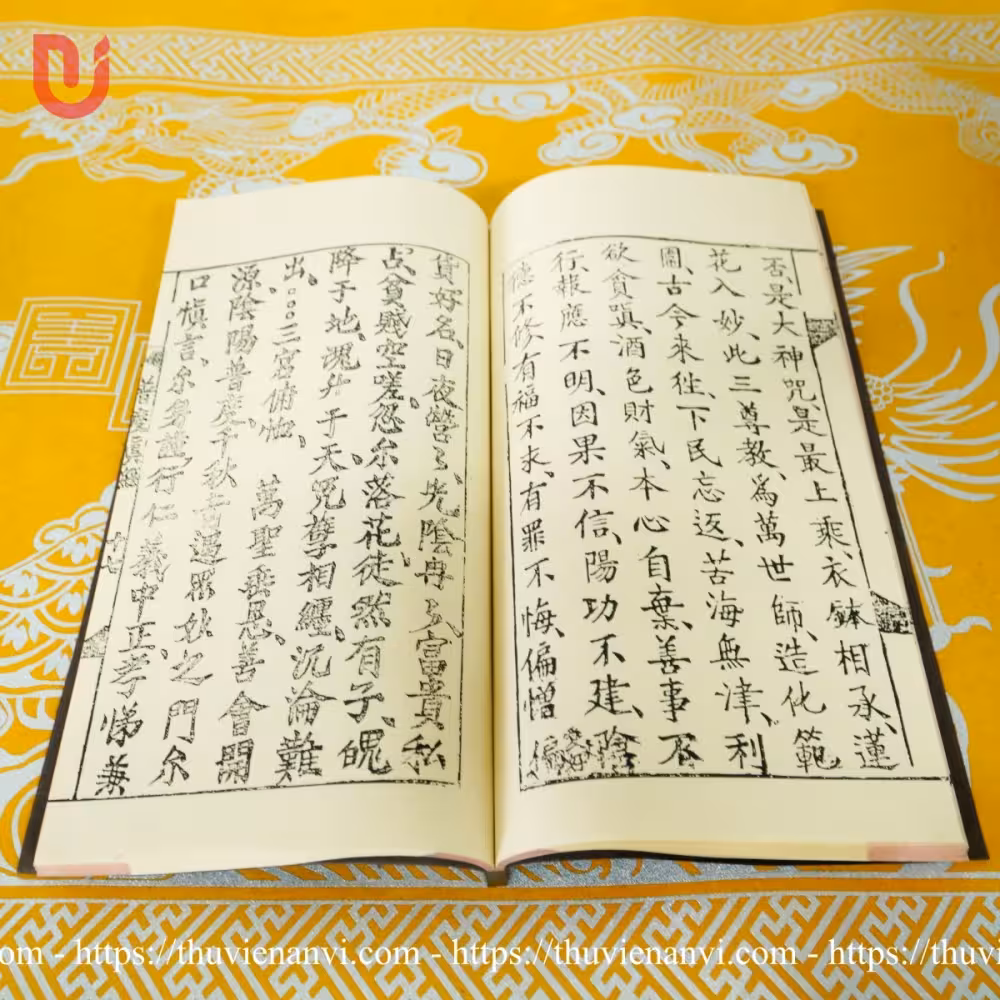 否、是大神咒、是最上乘、衣鉢相承、蓮
花入妙、此三尊教、為萬世師、造化範
圍、古今來徃、下民忘返、苦海無津、利
欲貪嗔、酒色財氣、本心自棄、善事不
行、報應不明、因果不信、陽功不建、陰
德不修、有福不求、有罪不悔、偏憎偏
貨好名、日夜營〻、光陰冉〻、富貴私
占、貧賤空嗟、忽尔落花、徒然有子、魄
降于地、魂升于天、冤孽相纏、沉淪難
出、。。。三宮俯恤、萬聖垂恩、善會開
源、陰陽普度、千秋吉遇、眾妙之門、尔
口慎言、尔身謹行、仁義中正、孝悌兼
普度真經
om - https://thuvienanvi.com - https://thuvienanvi.com - https://thuvi